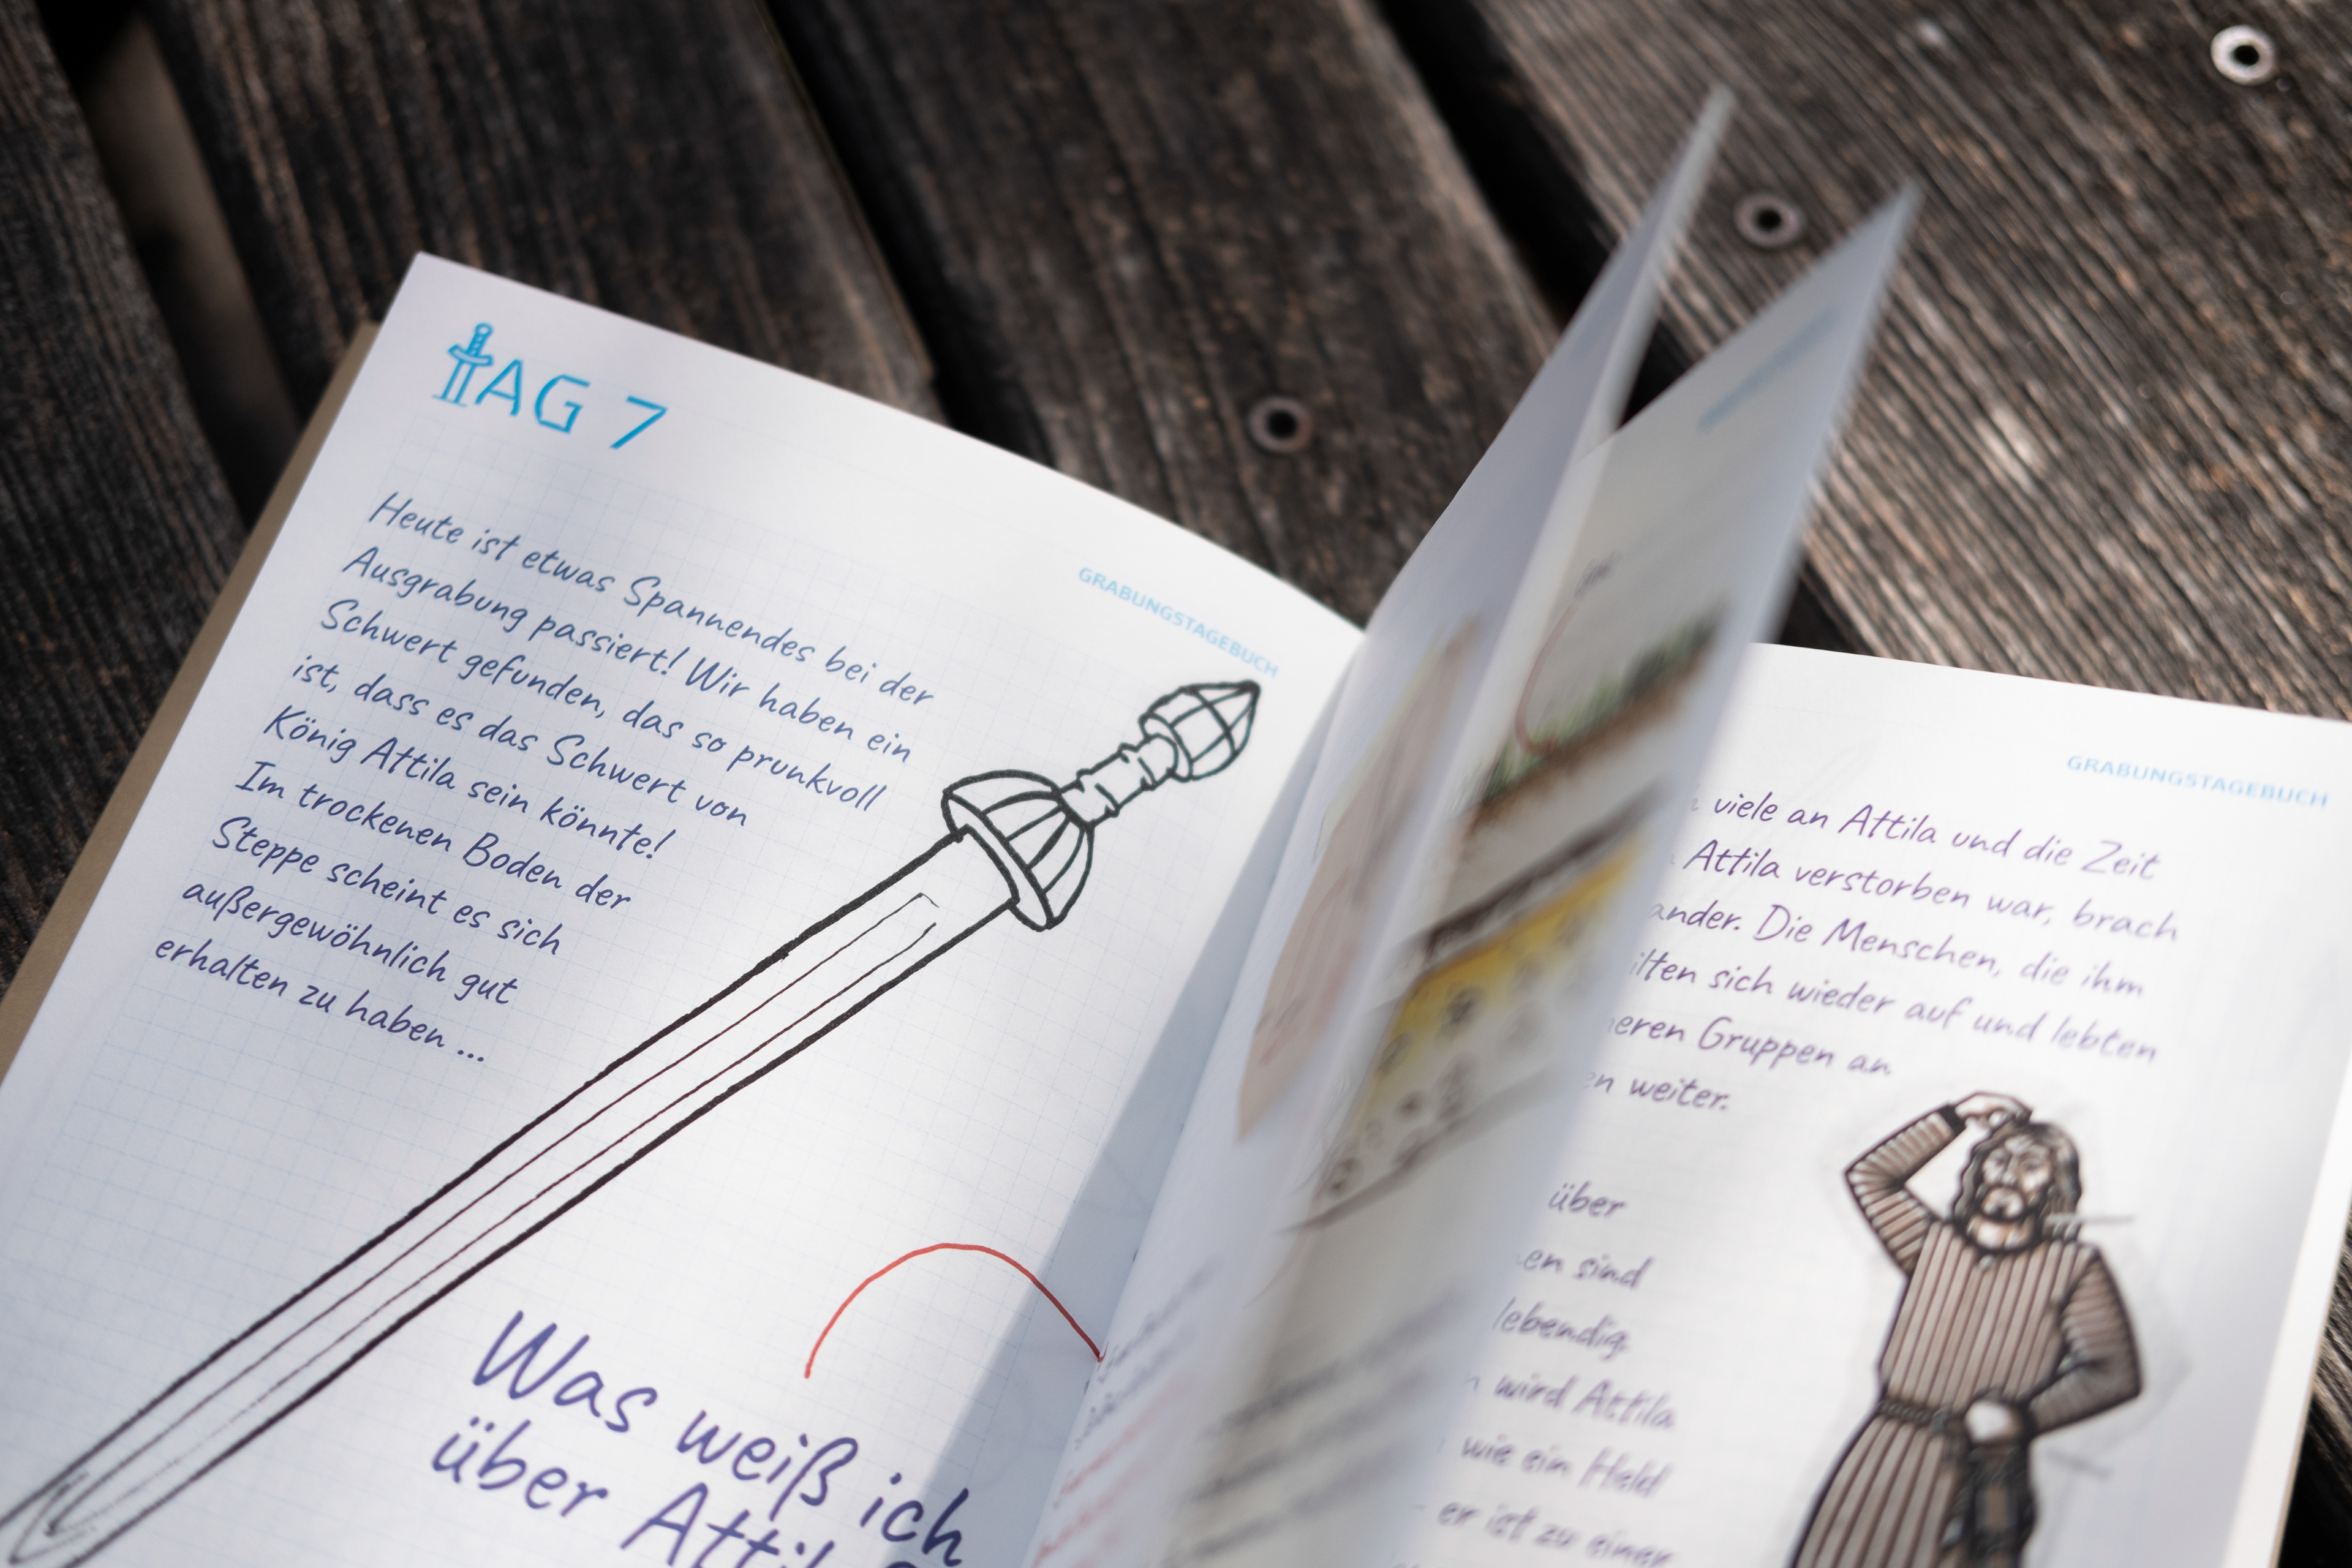 TAG 7
GRABUNGSTAGEBUCH
Heute ist etwas Spannendes bei der
Ausgrabung passiert! Wir haben ein
Schwert gefunden, das so prunkvoll
ist, dass es das Schwert von
König Attila sein könnte!
Im trockenen Boden der
Steppe scheint es sich
außergewöhnlich gut
erhalten zu haben ...
Was weiß ich
über
GRABUNGSTAGEBUCH
viele an Attila und die Zeit
Attila verstorben war, brach
Die Menschen, die ihm
sich wieder auf und lebten
Gruppen an
weiter.
über
sind
lebendig,
wird Attila
wie ein Held
er ist zu einer